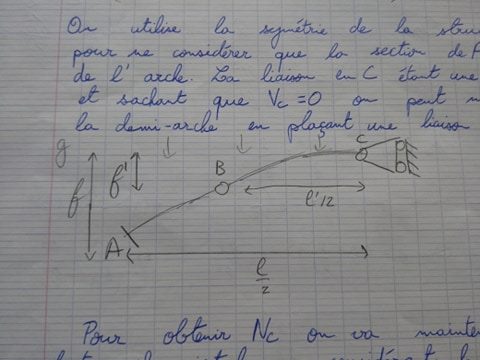 On utilise la symétrie de la stru
pour ne considérer que la section de
de l'arche. La liaison en C étant une
et sachant que Vc = 0 on peut
la demi-arche en plaçant une liaison
g
f
f'
B
C
l'/2
A
l/2
Pour obtenir Nc on va mainte